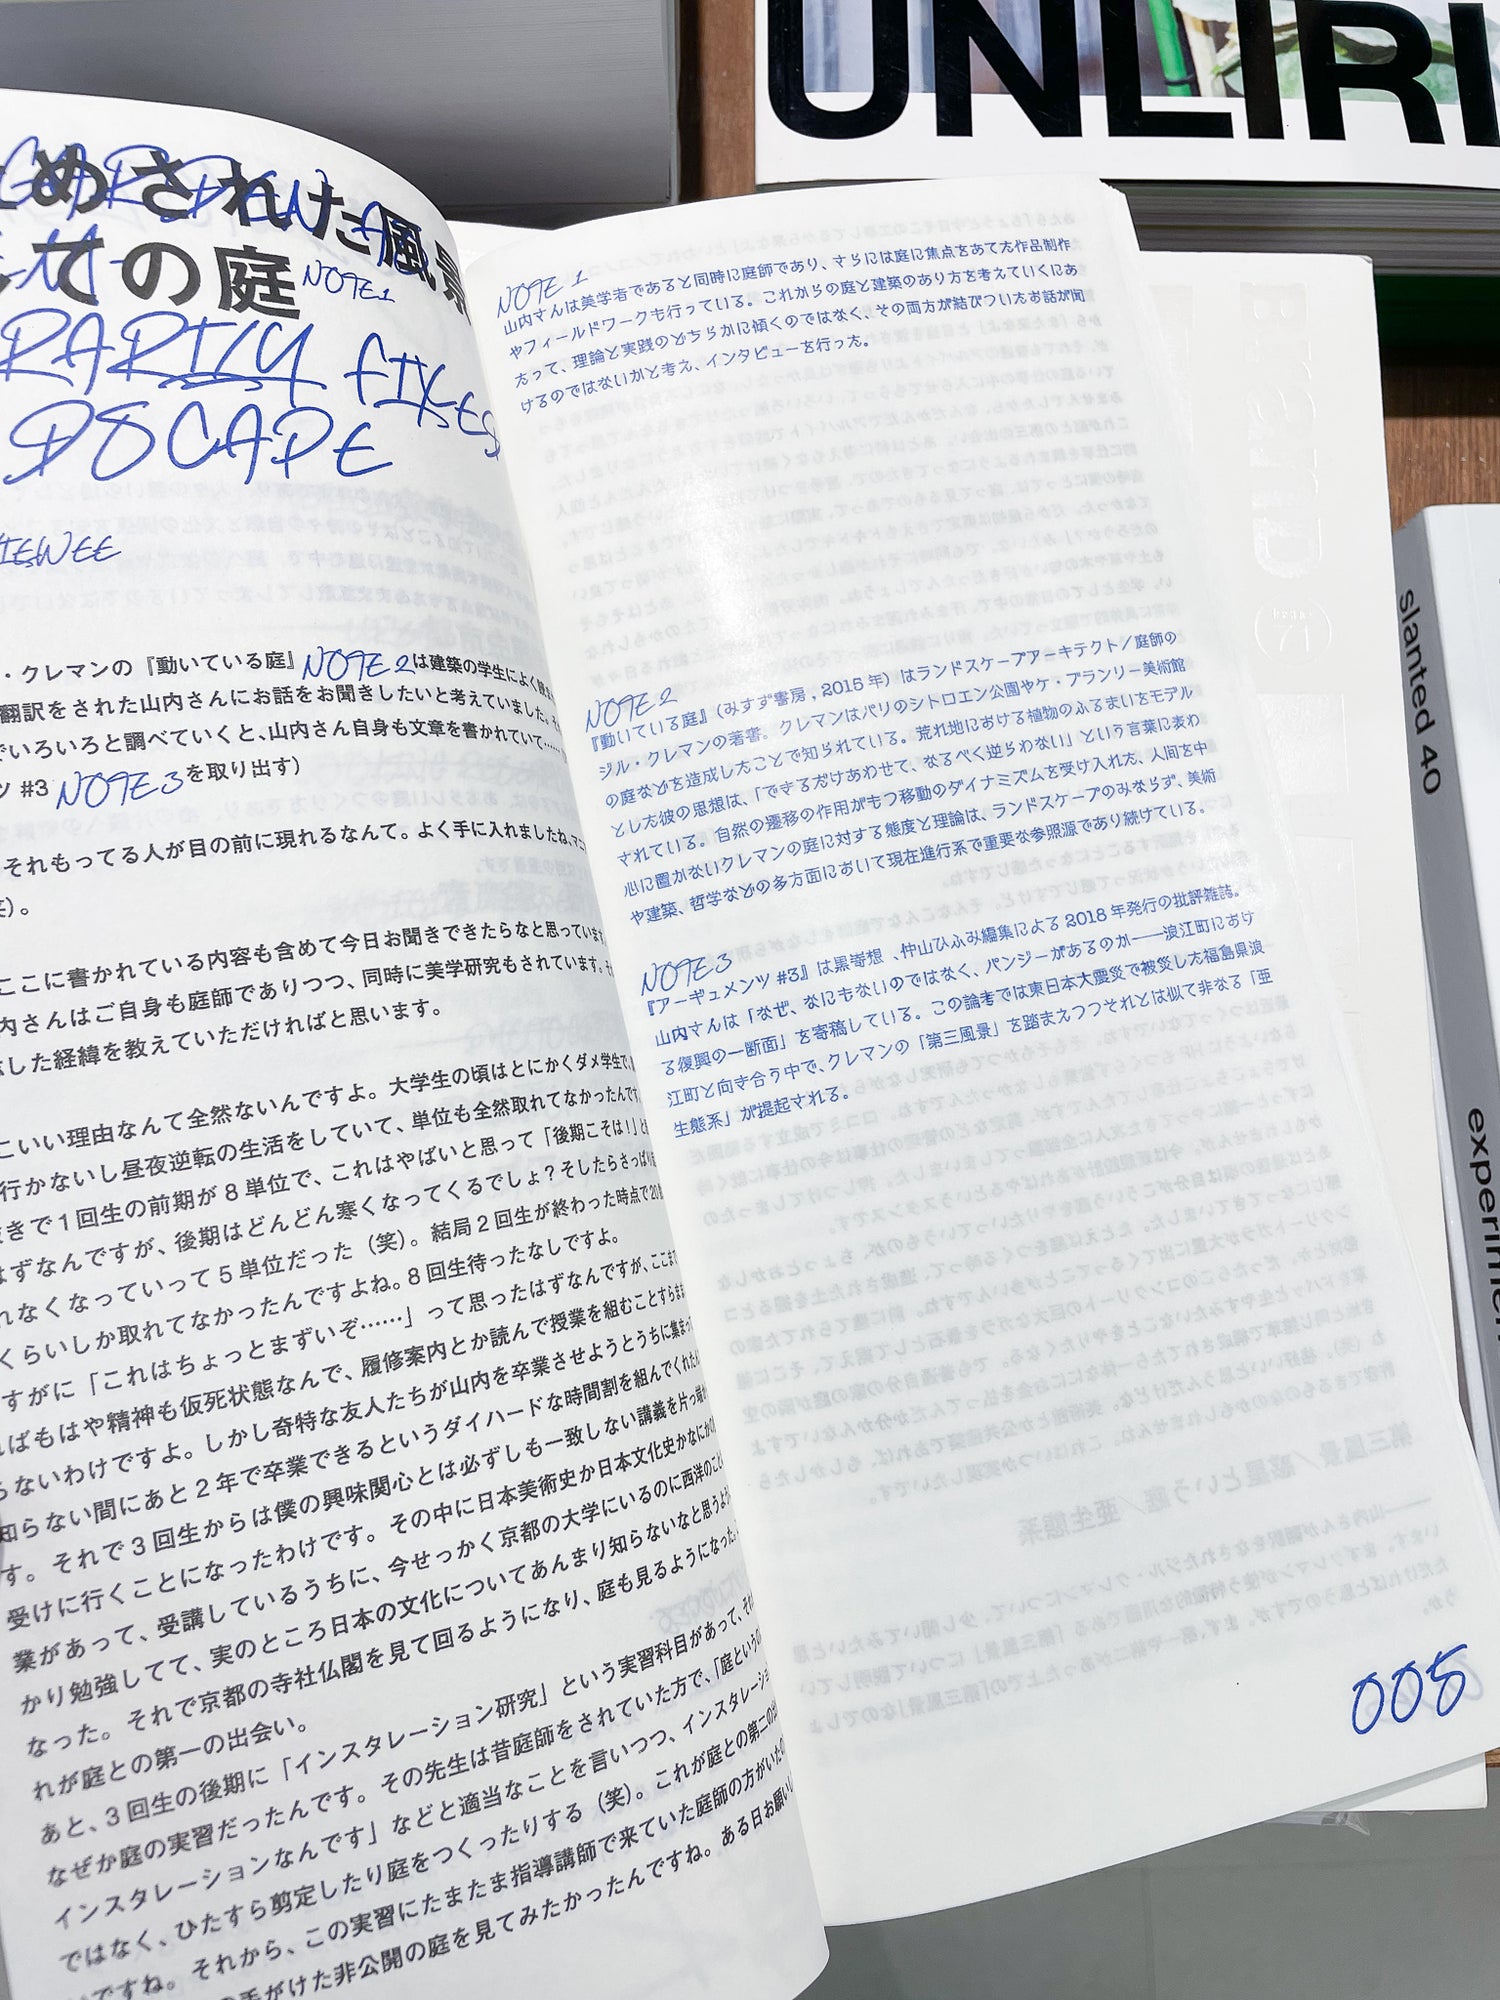 UNLIRI
めされた風景
ての庭 NOTE1
GARDEN AS
RARILY FIXED
DSCAPE
IEWEE
・クレマンの『動いている庭』NOTE2は建築の学生によく
翻訳をされた山内さんにお話をお聞きしたいと考えていました。
でいろいろと調べていくと、山内さん自身も文章を書かれていて……
ツ #3 NOTE3を取り出す）
それもってる人が目の前に現れるなんて。よく手に入れましたね、マニ
笑）。
ここに書かれている内容も含めて今日お聞きできたらなと思っています
内さんはご自身も庭師でありつつ、同時に美学研究もされています。
した経緯を教えていただければと思います。
こいい理由なんて全然ないんですよ。大学生の頃はとにかくダメ学生で、
行かないし昼夜逆転の生活をしていて、単位も全然取れてなかったんです
きで1回生の前期が8単位で、これはやばいと思って「後期こそは！」と
はずなんですが、後期はどんどん寒くなってくるでしょ？そしたらさっぱり
れなくなっていって5単位だった（笑）。結局2回生が終わった時点で20
くらいしか取れてなかったんですよね。8回生待ったなしですよ。
すがに「これはちょっとまずいぞ……」って思ったはずなんですが、ここまで
ばもはや精神も仮死状態なんで、履修案内とか読んで授業を組むことすらま
らないわけですよ。しかし奇特な友人たちが山内を卒業させようとうちに集まっ
知らない間にあと2年で卒業できるというダイハードな時間割を組んでくれた
す。それで3回生からは僕の興味関心とは必ずしも一致しない講義を片っ端
受けに行くことになったわけです。その中に日本美術史か日本文化史かなにかの
業があって、受講しているうちに、今せっかく京都の大学にいるのに西洋のこと
かり勉強してて、実のところ日本の文化についてあんまり知らないなと思うよう
なった。それで京都の寺社仏閣を見て回るようになり、庭も見るようになった。
れが庭との第一の出会い。
あと、3回生の後期に「インスタレーション研究」という実習科目があって、
なぜか庭の実習だったんです。その先生は昔庭師をされていた方で、「庭という
インスタレーションなんです」などと適当なことを言いつつ、インスタレーショ
ではなく、ひたすら剪定したり庭をつくったりする（笑）。これが庭との第二の
いですね。それから、この実習にたまたま指導講師で来ていた庭師の方がいた
手がけた非公開の庭を見てみたかったんですね。ある日お願い
NOTE 1
山内さんは美学者であると同時に庭師であり、さらには庭に焦点をあてた作品制作
やフィールドワークも行っている。これからの庭と建築のあり方を考えていくにあ
たって、理論と実践のどちらかに傾くのではなく、その両方が結びついたお話が聞
けるのではないかと考え、インタビューを行った。
NOTE 2
『動いている庭』（みすず書房, 2015年）はランドスケープアーキテクト／庭師の
ジル・クレマンの著書。クレマンはパリのシトロエン公園やケ・ブランリー美術館
の庭などを造成したことで知られている。荒れ地における植物のふるまいをモデル
とした彼の思想は、「できるだけあわせて、なるべく逆らわない」という言葉に表わ
されている。自然の遷移の作用がもつ移動のダイナミズムを受け入れた、人間を中
心に置かないクレマンの庭に対する態度と理論は、ランドスケープのみならず、美術
や建築、哲学などの多方面において現在進行系で重要な参照源であり続けている。
NOTE 3
『アーギュメンツ #3』は黒嵜想、仲山ひふみ編集による2018年発行の批評雑誌。
山内さんは「なぜ、なにもないのではなく、パンジーがあるのか――浪江町におけ
る復興の一断面」を寄稿している。この論考では東日本大震災で被災した福島県浪
江町と向き合う中で、クレマンの「第三風景」を踏まえつつそれとは似て非なる「亜
生態系」が提起される。
005
slanted 40
experimen